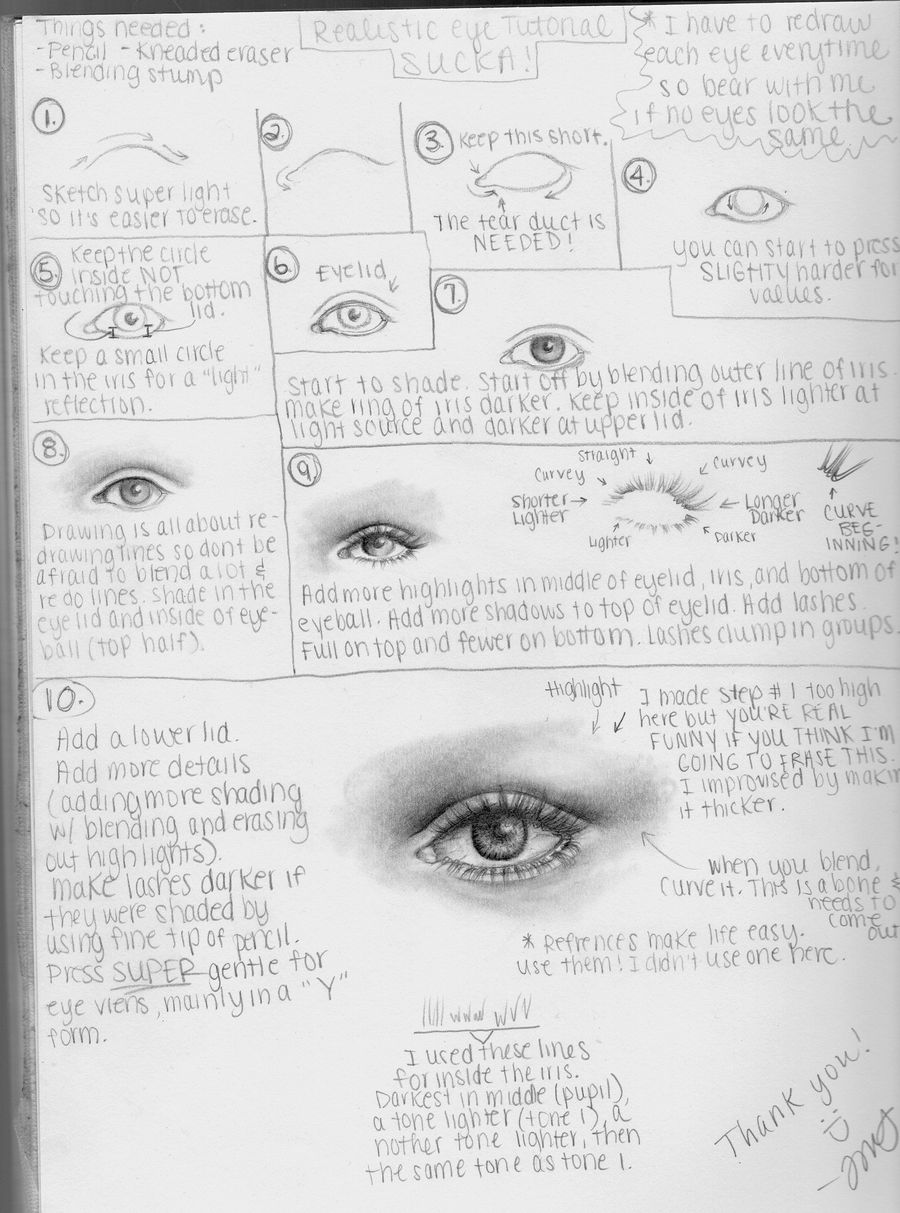 Things needed:
-Pencil -Kneaded eraser
-Blending stump
Realistic eye Tutorial
SUCKA!
* I have to redraw
each eye everytime
so bear with me
if no eyes look the
same.
1.
Sketch super light
so it's easier to erase.
2.
3. Keep this short.
The tear duct is
NEEDED!
4.
you can start to press
SLIGHTY harder for
values.
5. Keep the circle
inside NOT
touching the bottom
lid.
Keep a small circle
in the iris for a "light"
reflection.
6. Eyelid
7.
Start to shade. Start off by blending outer line of iris.
make ring of iris darker. Keep inside of iris lighter at
light source and darker at upper lid.
8.
Drawing is all about re-
drawing lines so dont be
afraid to blend a lot &
redo lines. Shade in the
eye lid and inside of eye-
ball (top half).
9
Straight
Curvey
Curvey
Shorter
Lighter
Longer
Darker
Lighter
Darker
CURVE
BEG-
INNING!
Add more highlights in middle of eyelid, iris, and bottom of
eyeball. Add more shadows to top of eyelid. Add lashes.
Full on top and fewer on bottom. Lashes clump in groups.
10.
Add a lower lid.
Add more details
(adding more shading
w/ blending and erasing
out highlights).
make lashes darker if
they were shaded by
using fine tip of pencil.
Press SUPER gentle for
eye viens, mainly in a "Y"
form.
Highlight
I made step #1 too high
here but YOU'RE REAL
FUNNY IF YOU THINK I'M
GOING TO ERASE THIS.
I improvised by makin
it thicker.
when you blend,
curve it. This is a bone &
needs to
come
out
* Refrences make life easy.
use them! I didn't use one here.
I used these lines
for inside the iris.
Darkest in middle (pupil),
a tone lighter (tone 1), a
nother tone lighter, then
the same tone as tone 1.
Thank you!